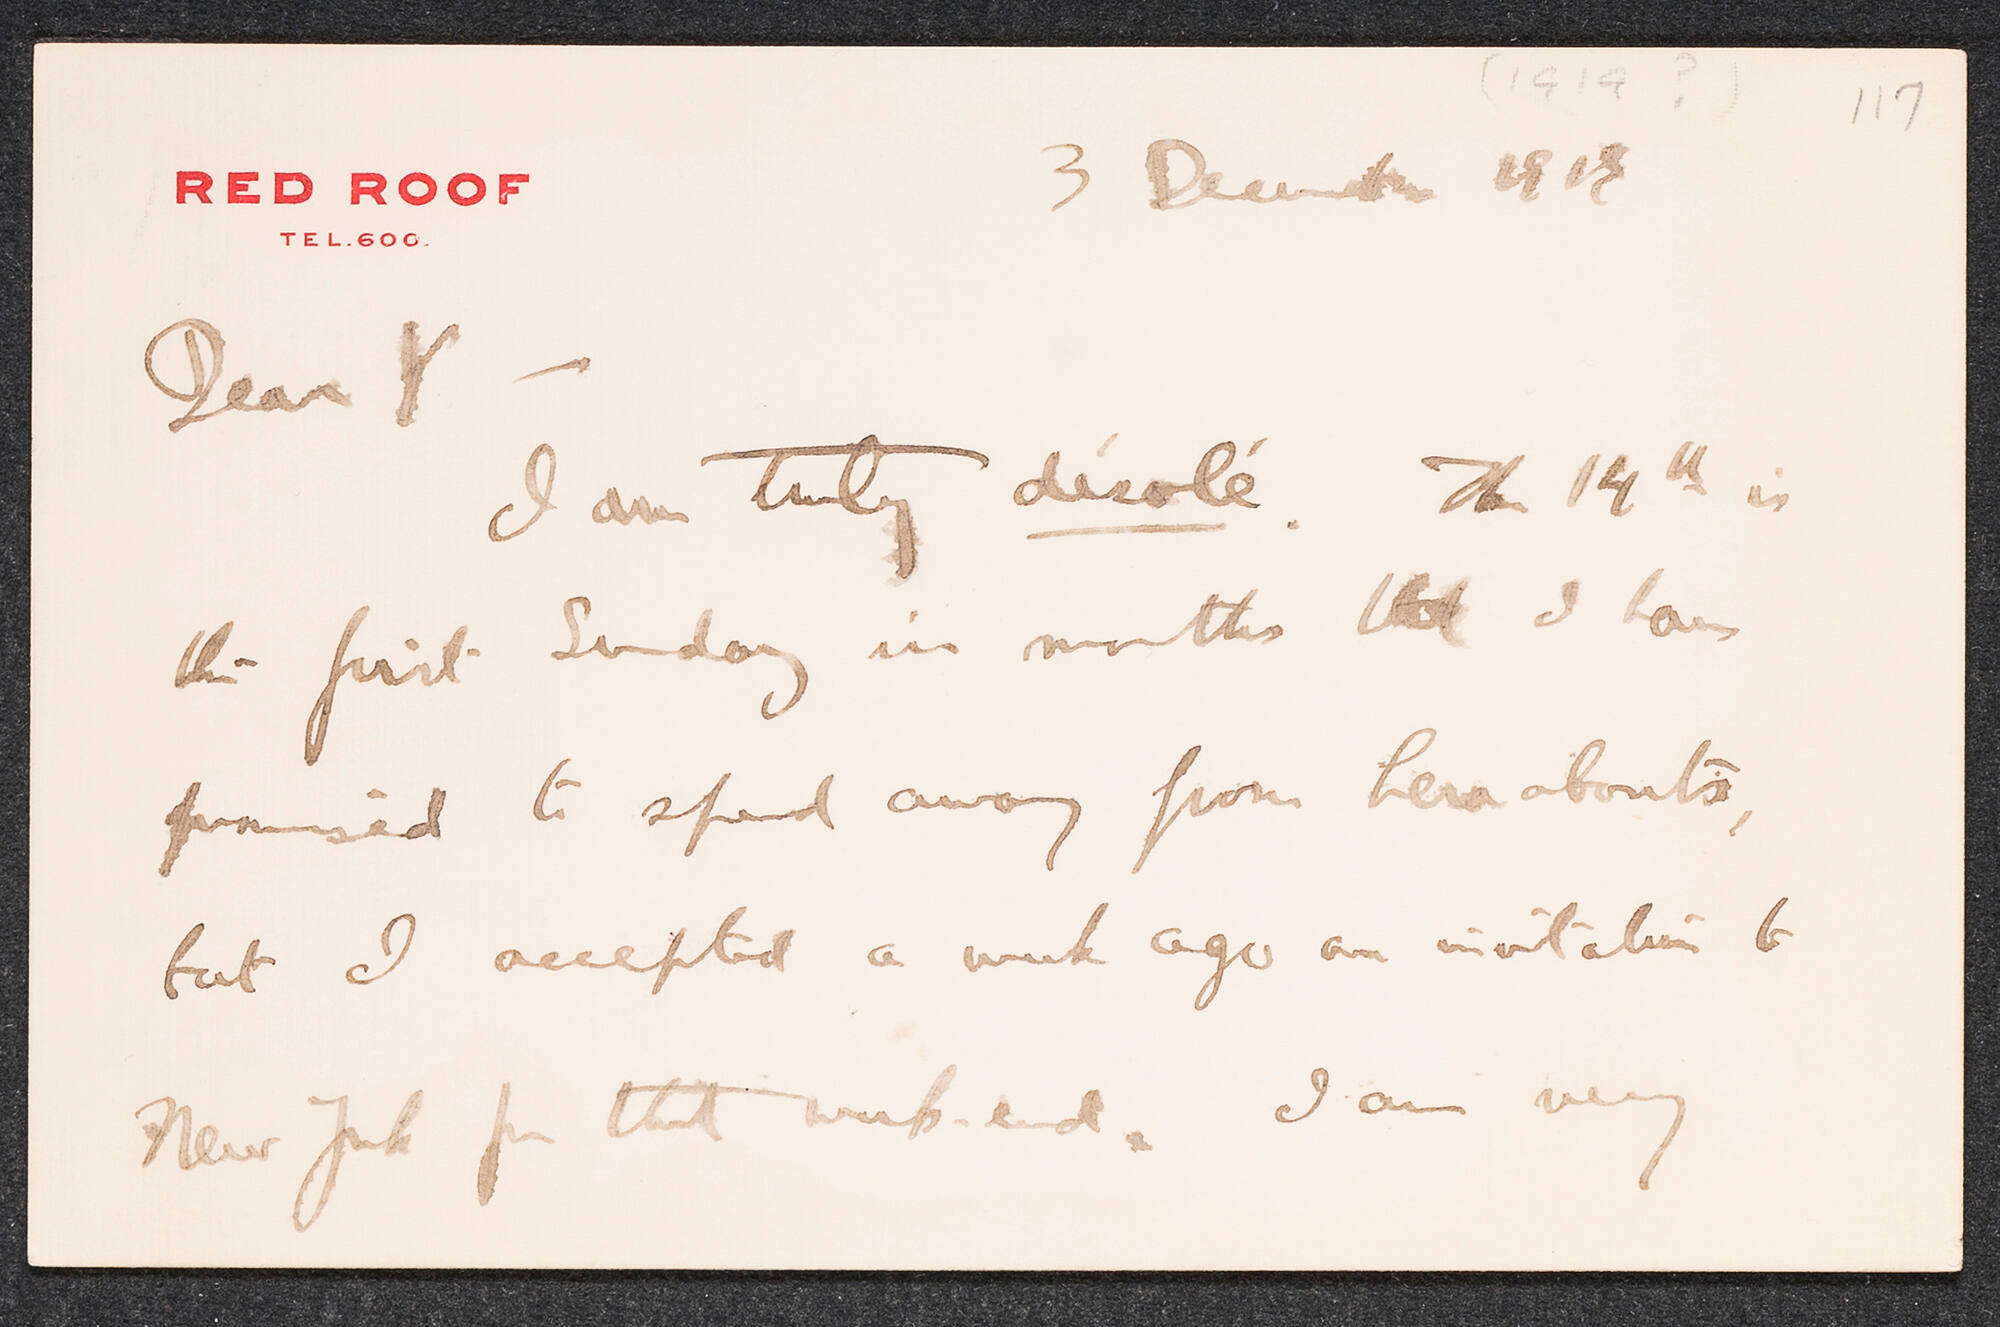 (1919 ?)
117
RED ROOF
TEL. 600.
3 December 1919
Dear Y —
I am truly désolé. The 14th is
the first Sunday in months that I have
promised to spend away from hereabouts,
but I accepted a week ago an invitation to
New York for that week-end. I am very